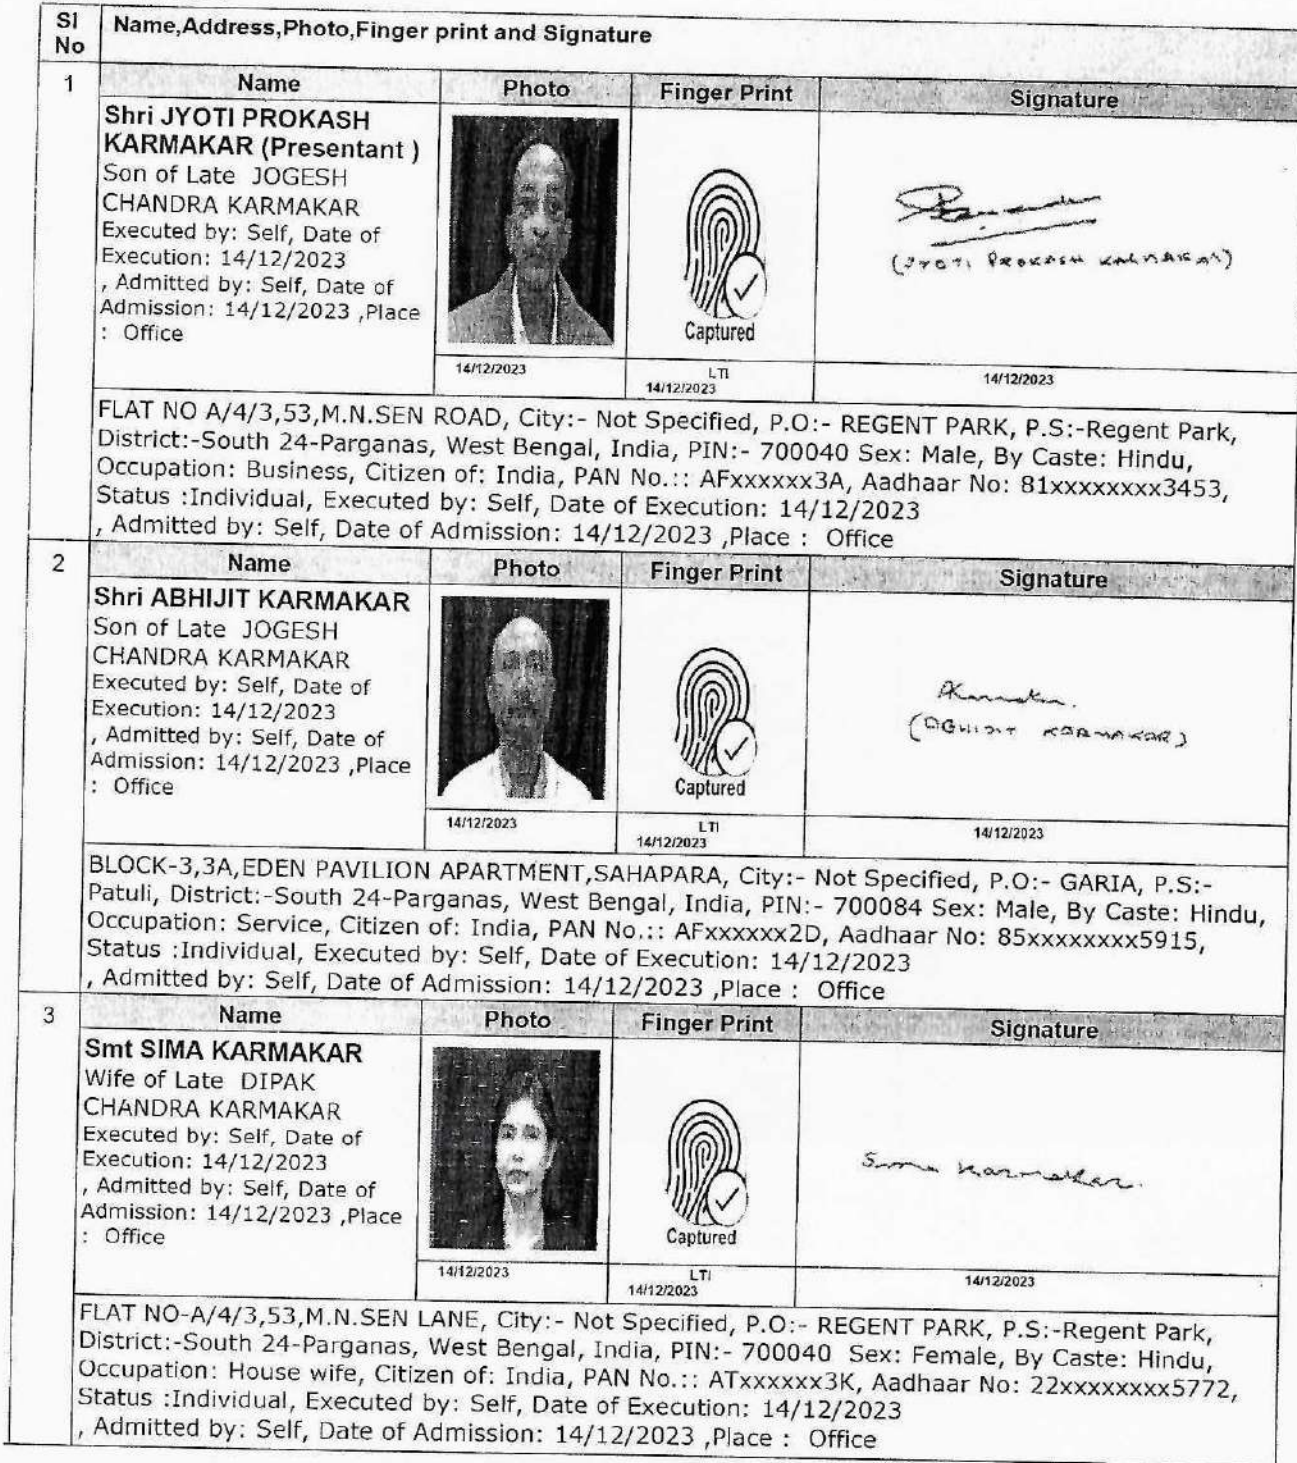 Sl No
Name,Address,Photo,Finger print and Signature
1
Name Photo Finger Print Signature
Shri JYOTI PROKASH
KARMAKAR (Presentant )
Son of Late JOGESH
CHANDRA KARMAKAR
Executed by: Self, Date of
Execution: 14/12/2023
, Admitted by: Self, Date of
Admission: 14/12/2023 ,Place
: Office
Captured
(JYOTI PROKASH KARMAKAR)
14/12/2023
LTI
14/12/2023
14/12/2023
FLAT NO A/4/3,53,M.N.SEN ROAD, City:- Not Specified, P.O:- REGENT PARK, P.S:-Regent Park,
District:-South 24-Parganas, West Bengal, India, PIN:- 700040 Sex: Male, By Caste: Hindu,
Occupation: Business, Citizen of: India, PAN No.:: AFxxxxxx3A, Aadhaar No: 81xxxxxxxx3453,
Status :Individual, Executed by: Self, Date of Execution: 14/12/2023
, Admitted by: Self, Date of Admission: 14/12/2023 ,Place : Office
2
Name Photo Finger Print Signature
Shri ABHIJIT KARMAKAR
Son of Late JOGESH
CHANDRA KARMAKAR
Executed by: Self, Date of
Execution: 14/12/2023
, Admitted by: Self, Date of
Admission: 14/12/2023 ,Place
: Office
Captured
AKarmakar.
(ABHIJIT KARMAKAR)
14/12/2023
LTI
14/12/2023
14/12/2023
BLOCK-3,3A,EDEN PAVILION APARTMENT,SAHAPARA, City:- Not Specified, P.O:- GARIA, P.S:-
Patuli, District:-South 24-Parganas, West Bengal, India, PIN:- 700084 Sex: Male, By Caste: Hindu,
Occupation: Service, Citizen of: India, PAN No.:: AFxxxxxx2D, Aadhaar No: 85xxxxxxxx5915,
Status :Individual, Executed by: Self, Date of Execution: 14/12/2023
, Admitted by: Self, Date of Admission: 14/12/2023 ,Place : Office
3
Name Photo Finger Print Signature
Smt SIMA KARMAKAR
Wife of Late DIPAK
CHANDRA KARMAKAR
Executed by: Self, Date of
Execution: 14/12/2023
, Admitted by: Self, Date of
Admission: 14/12/2023 ,Place
: Office
Captured
Sima Karmakar.
14/12/2023
LTI
14/12/2023
14/12/2023
FLAT NO-A/4/3,53,M.N.SEN LANE, City:- Not Specified, P.O:- REGENT PARK, P.S:-Regent Park,
District:-South 24-Parganas, West Bengal, India, PIN:- 700040 Sex: Female, By Caste: Hindu,
Occupation: House wife, Citizen of: India, PAN No.:: ATxxxxxx3K, Aadhaar No: 22xxxxxxxx5772,
Status :Individual, Executed by: Self, Date of Execution: 14/12/2023
, Admitted by: Self, Date of Admission: 14/12/2023 ,Place : Office